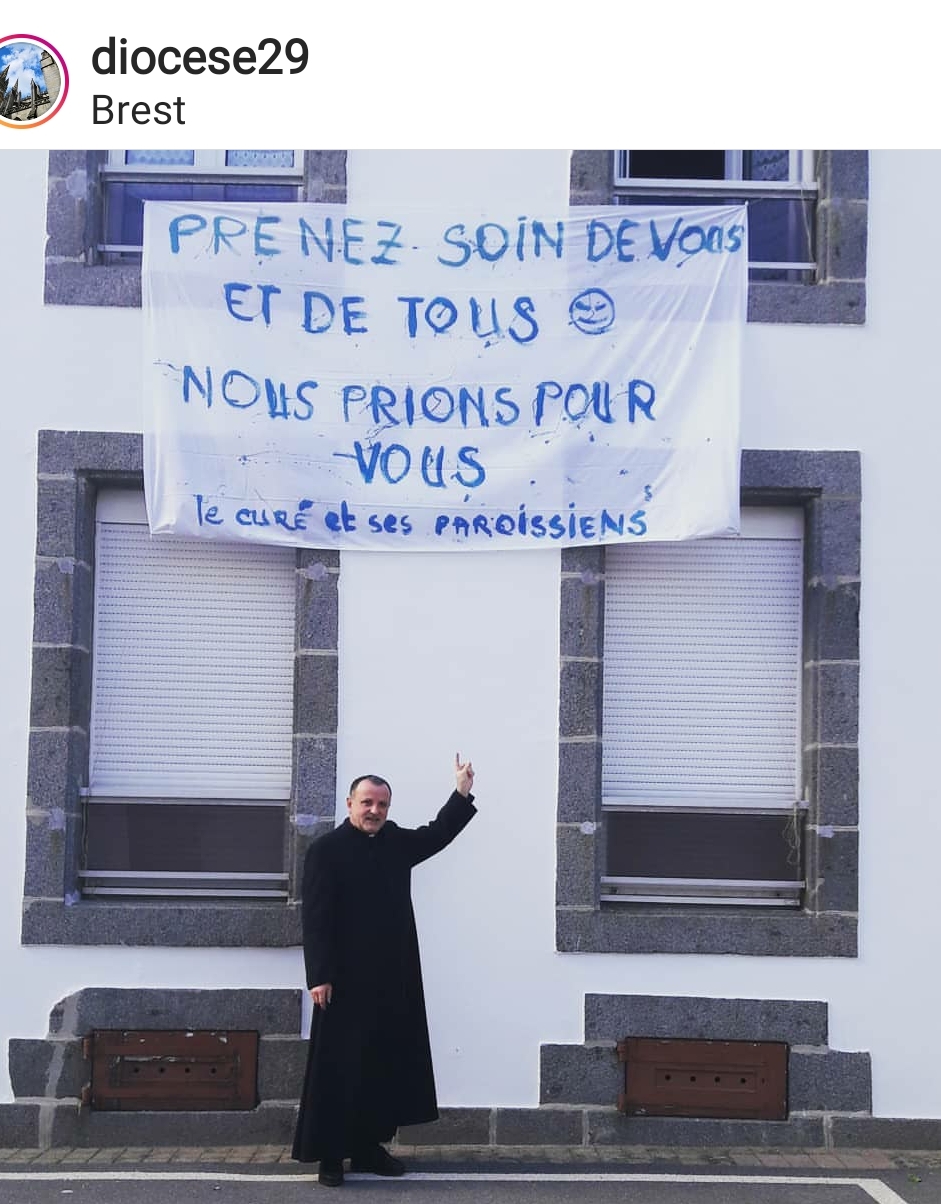 diocese29
Brest
PRENEZ SOIN DE VOUS
ET DE TOUS
NOUS PRIONS POUR
VOUS
le curé et ses PAROISSIENS